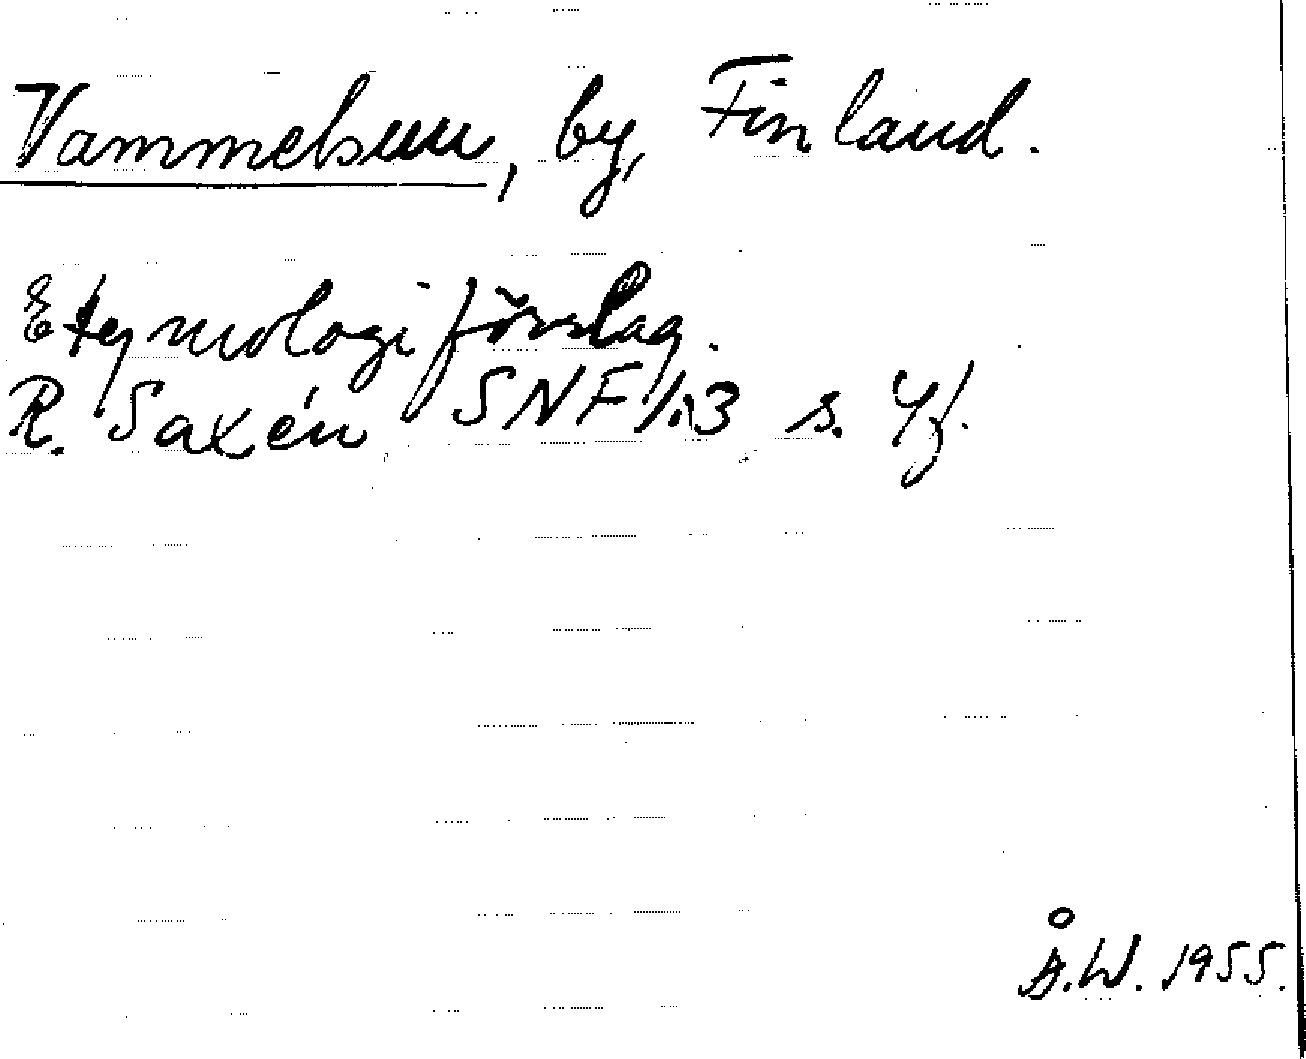 Vammelsuu, by, Finland.
Etymologiförslag.
R. Saxén SNF 1:3 s. 4f.
Å.W. 1955.